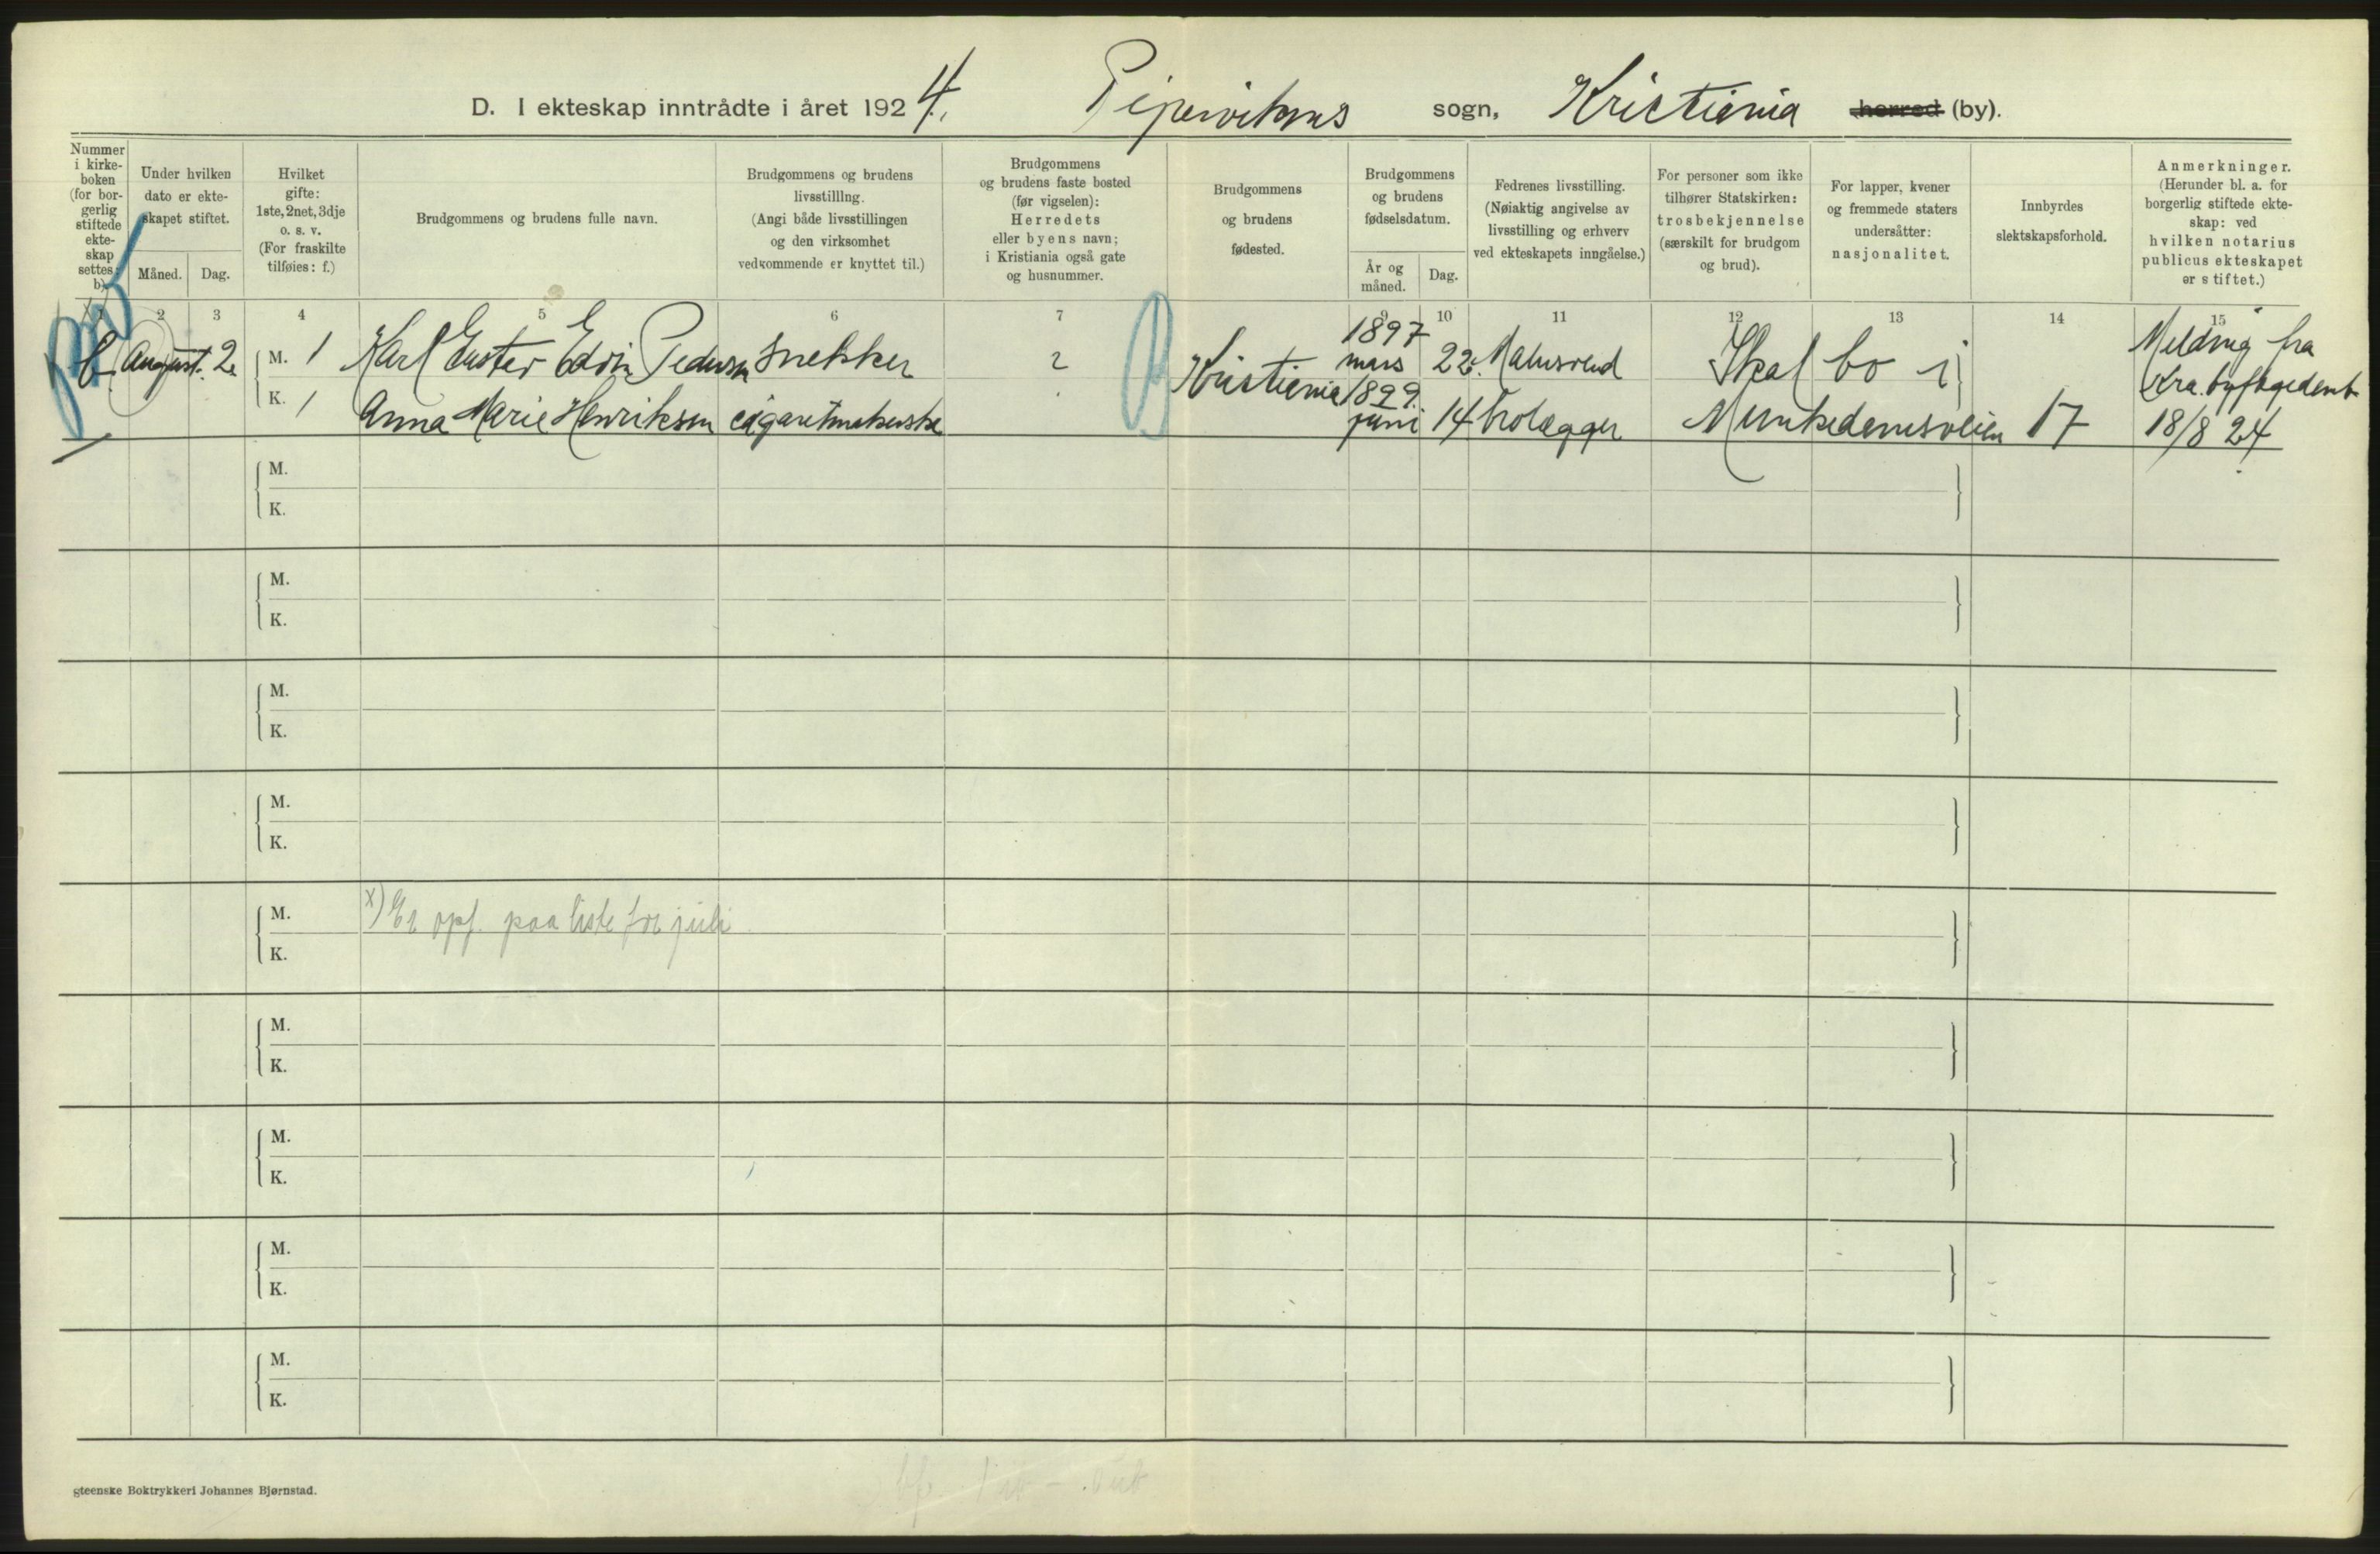 D. I ekteskap inntrådte i året 1924. Pipervikens sogn, Kristiania herred (by).
Nummer
i kirke-
boken
(for bor-
gerlig
stiftede
ekte-
skap
settes:
b)
Under hvilken
dato er ekte-
skapet stiftet.
Måned.
Dag.
Hvilket
gifte:
1ste, 2net, 3dje
o. s. v.
(For fraskilte
tilføies: f.)
Brudgommens og brudens fulle navn.
Brudgommens og brudens
livsstilllng.
(Angi både livsstillingen
og den virksomhet
vedkommende er knyttet til.)
Brudgommens
og brudens faste bosted
(før vigselen):
Herredets
eller byens navn;
i Kristiania også gate
og husnummer.
Brudgommens
og brudens
fødested.
Brudgommens
og brudens
fødselsdatum.
År og
måned.
Dag.
Fedrenes livsstilling.
(Nøiaktig angivelse av
livsstilling og erhverv
ved ekteskapets inngåelse.)
For personer som ikke
tilhører Statskirken:
trosbekjennelse
(særskilt for brudgom
og brud).
For lapper, kvener
og fremmede staters
undersåtter:
nasjonalitet.
Innbyrdes
slektskapsforhold.
Anmerkninger.
(Herunder bl. a. for
borgerlig stiftede ekte-
skap: ved
hvilken notarius
publicus ekteskapet
er stiftet.)
1 2 3 4 5 6 7 9 10 11 12 13 14 15
b. August. 2. M. 1 Karl Gustav Edvin Pedersen snekker ? Kristiania 1897 mars 22. Malersvend Skal bo i Melding fra
Kra. byfogedemb.
K. 1 Anna Marie Henriksen cigaretmakerske 1899. juni 14 brolægger Munkedamsveien 17 18/8 24
M.
K.
M.
K.
M.
K.
M.
K.
M. x) Er opf. paa liste for juli
K.
M.
K.
M.
K.
M.
K.
M.
K.
gteenske Boktrykkeri Johannes Bjørnstad.